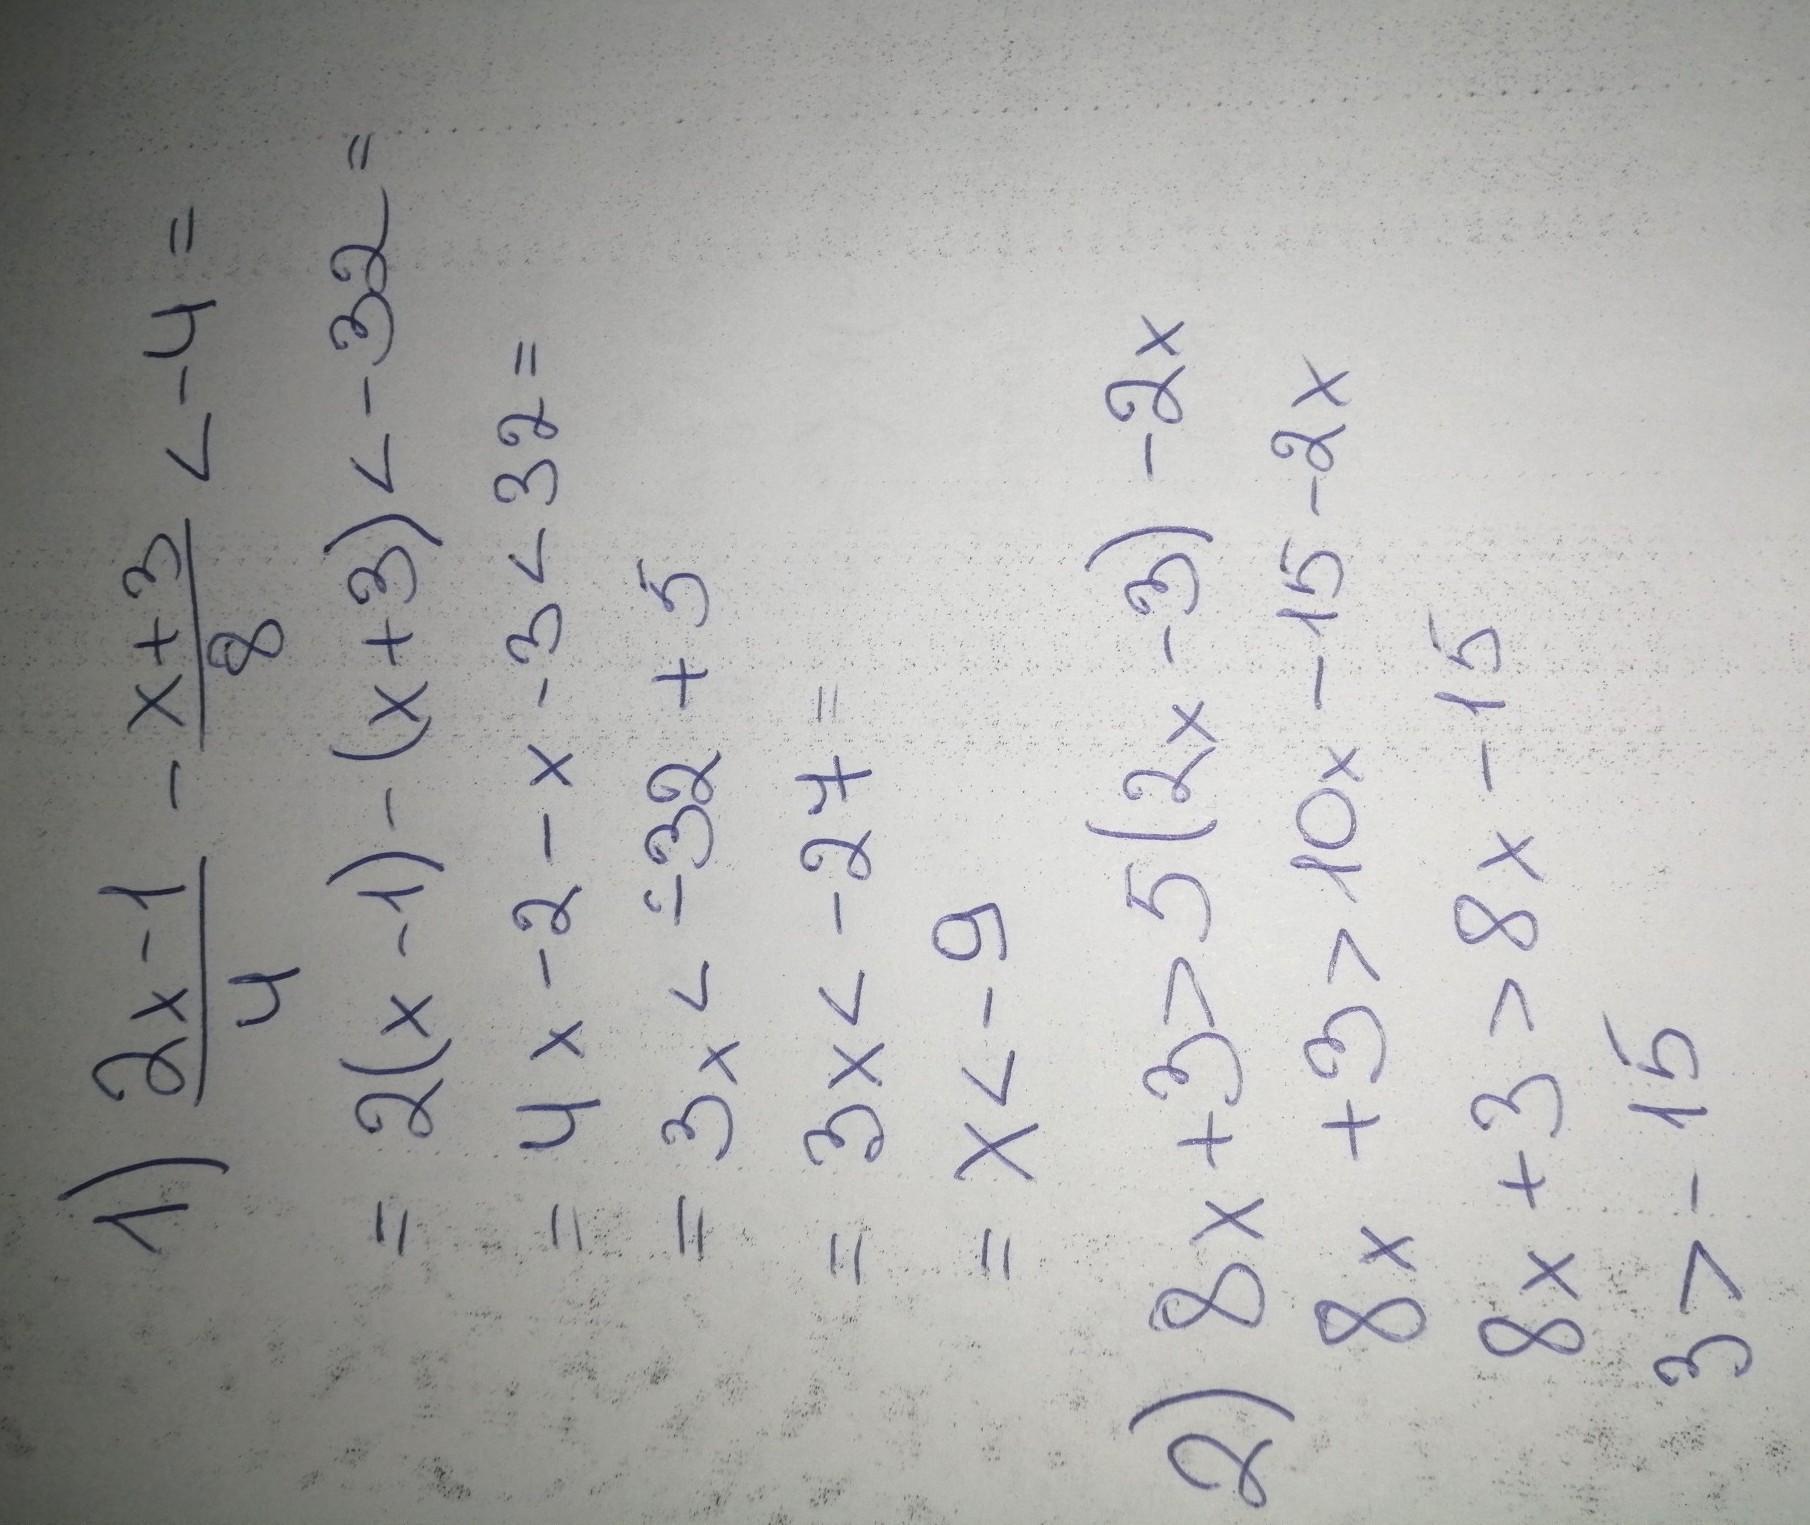 1) \frac{2x-1}{4} - \frac{x+3}{8} < -4 =
= 2(x-1) - (x+3) < -32 =
= 4x - 2 - x - 3 < 32 =
= 3x < -32 + 5
= 3x < -27 =
= x < -9
2) 8x + 3 > 5(2x - 3) - 2x
8x + 3 > 10x - 15 - 2x
8x + 3 > 8x - 15
3 > - 15